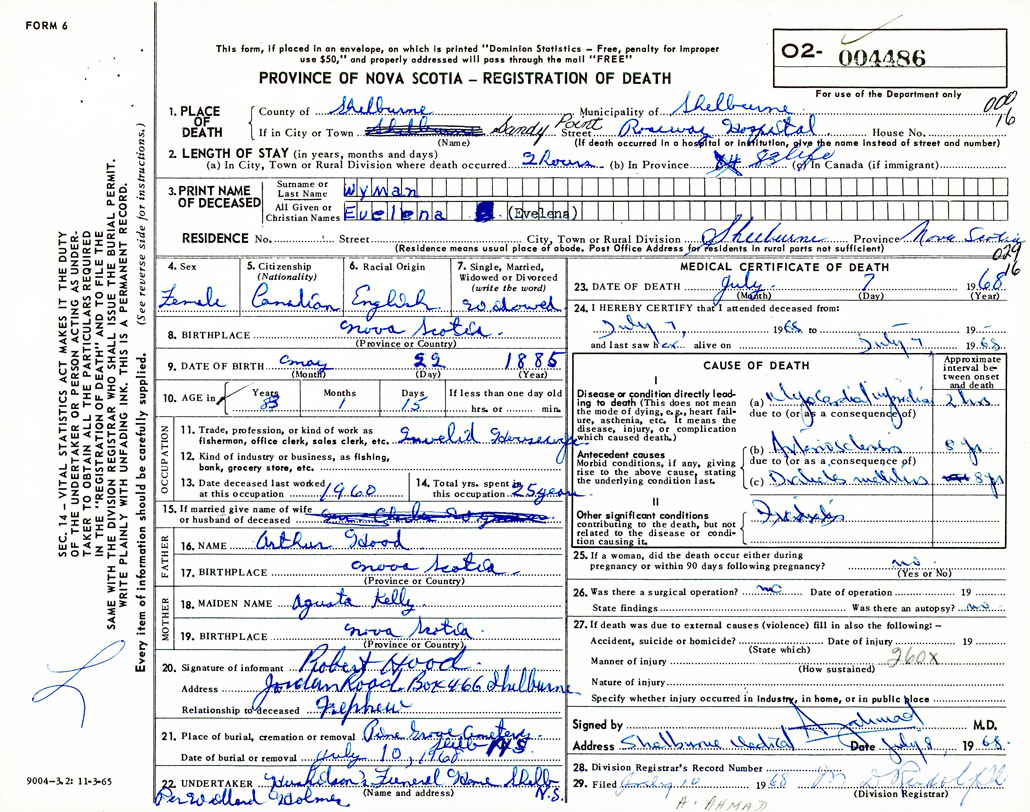 FORM 6
This form, if placed in an envelope, on which is printed "Dominion Statistics – Free, penalty for improper
use $50," and properly addressed will pass through the mail "FREE"
PROVINCE OF NOVA SCOTIA – REGISTRATION OF DEATH
O2- 004486
For use of the Department only
000
16
1. PLACE OF DEATH
County of Shelburne Municipality of Shelburne
If in City or Town Shelburne Sandy Point Street Roseway Hospital House No.
(Name) (If death occurred in a hospital or institution, give the name instead of street and number)
2. LENGTH OF STAY (in years, months and days)
(a) In City, Town or Rural Division where death occurred 2 hours (b) In Province life (c) In Canada (if immigrant)
3. PRINT NAME OF DECEASED
Surname or Last Name Wyman
All Given or Christian Names Evelena (Evelena)
RESIDENCE No. Street City, Town or Rural Division Shelburne Province Nova Scotia
(Residence means usual place of abode. Post Office Address for residents in rural parts not sufficient)
029
16
4. Sex
Female
5. Citizenship
(Nationality)
Canadian
6. Racial Origin
English
7. Single, Married,
Widowed or Divorced
(write the word)
Widowed
8. BIRTHPLACE Nova Scotia
(Province or Country)
9. DATE OF BIRTH May 22 1885
(Month) (Day) (Year)
10. AGE in
Years Months Days If less than one day old
83 1 15 hrs. or min.
OCCUPATION
11. Trade, profession, or kind of work as
fisherman, office clerk, sales clerk, etc. Invalid Housewife
12. Kind of industry or business, as fishing,
bank, grocery store, etc.
13. Date deceased last worked
at this occupation 1960
14. Total yrs. spent in
this occupation 25 years
15. If married give name of wife
or husband of deceased
FATHER
16. NAME Arthur Hood
17. BIRTHPLACE Nova Scotia
(Province or Country)
MOTHER
18. MAIDEN NAME Agusta Kelly
19. BIRTHPLACE Nova Scotia
(Province or Country)
20. Signature of informant Robert Hood
Address Jordan Road. Box 466 Shelburne
Relationship to deceased Nephew
21. Place of burial, cremation or removal Pine Grove Cemetery
Shelb NS
Date of burial or removal July 10, 1968
22. UNDERTAKER Funeral Home Shelb
(Name and address) N.S.
Per Willard Holmes
MEDICAL CERTIFICATE OF DEATH
23. DATE OF DEATH July 7 1968
(Month) (Day) (Year)
24. I HEREBY CERTIFY that I attended deceased from:
July 7, 1968 to – 19 –
and last saw h er alive on July 7 1968
CAUSE OF DEATH
Approximate
interval be-
tween onset
and death
I
Disease or condition directly lead-
ing to death (This does not mean
the mode of dying, e.g., heart fail-
ure, asthenia, etc. It means the
disease, injury, or complication
which caused death.)
(a) Myocardial infarction 2 hrs
due to (or as a consequence of)
Antecedent causes
Morbid conditions, if any, giving
rise to the above cause, stating
the underlying condition last.
(b) Arteriosclerosis 8 yrs
due to (or as a consequence of)
(c) Diabetes mellitus 8 yrs
II
Other significant conditions
contributing to the death, but not
related to the disease or condi-
tion causing it.
25. If a woman, did the death occur either during
pregnancy or within 90 days following pregnancy? no
(Yes or No)
26. Was there a surgical operation? no Date of operation 19
State findings Was there an autopsy? no
27. If death was due to external causes (violence) fill in also the following: –
Accident, suicide or homicide? Date of injury 19
(State which)
260X
Manner of injury
(How sustained)
Nature of injury
Specify whether injury occurred in industry, in home, or in public place
Signed by A. Ahmad M.D.
Address Shelburne Date July 8, 1968.
28. Division Registrar's Record Number
29. Filed July 10 1968
(Division Registrar)
H. AHMAD
9004-3.2: 11-3-65
SEC. 14 – VITAL STATISTICS ACT MAKES IT THE DUTY
OF THE UNDERTAKER OR PERSON ACTING AS UNDER-
TAKER TO OBTAIN ALL THE PARTICULARS REQUIRED
IN THE "REGISTRATION OF DEATH" AND TO FILE THE
SAME WITH THE DIVISION REGISTRAR WHO SHALL ISSUE THE BURIAL PERMIT.
WRITE PLAINLY WITH UNFADING INK. THIS IS A PERMANENT RECORD.
Every item of information should be carefully supplied. (See reverse side for instructions.)